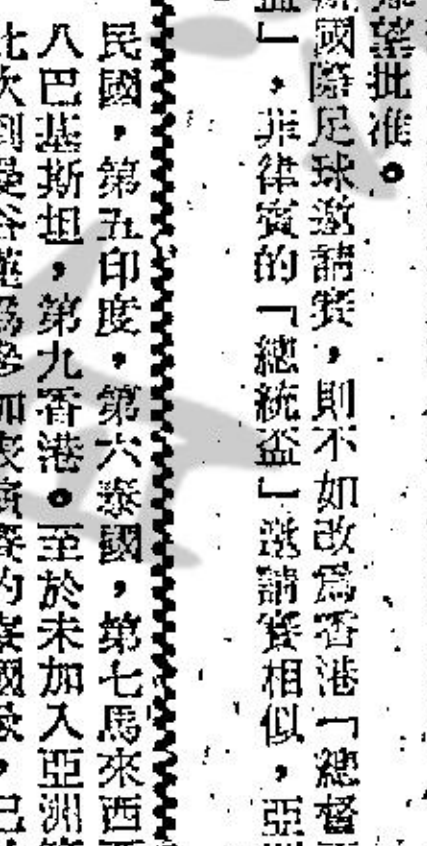 望批准。
國際足球邀請賽，則不如改爲香港「總督
盃」，菲律賓的「總統盃」邀請賽相似，亞
民國，第五印度，第六泰國，第七馬來西
八巴基斯坦，第九香港。至於未加入亞洲
次到曼谷參加表演賽的